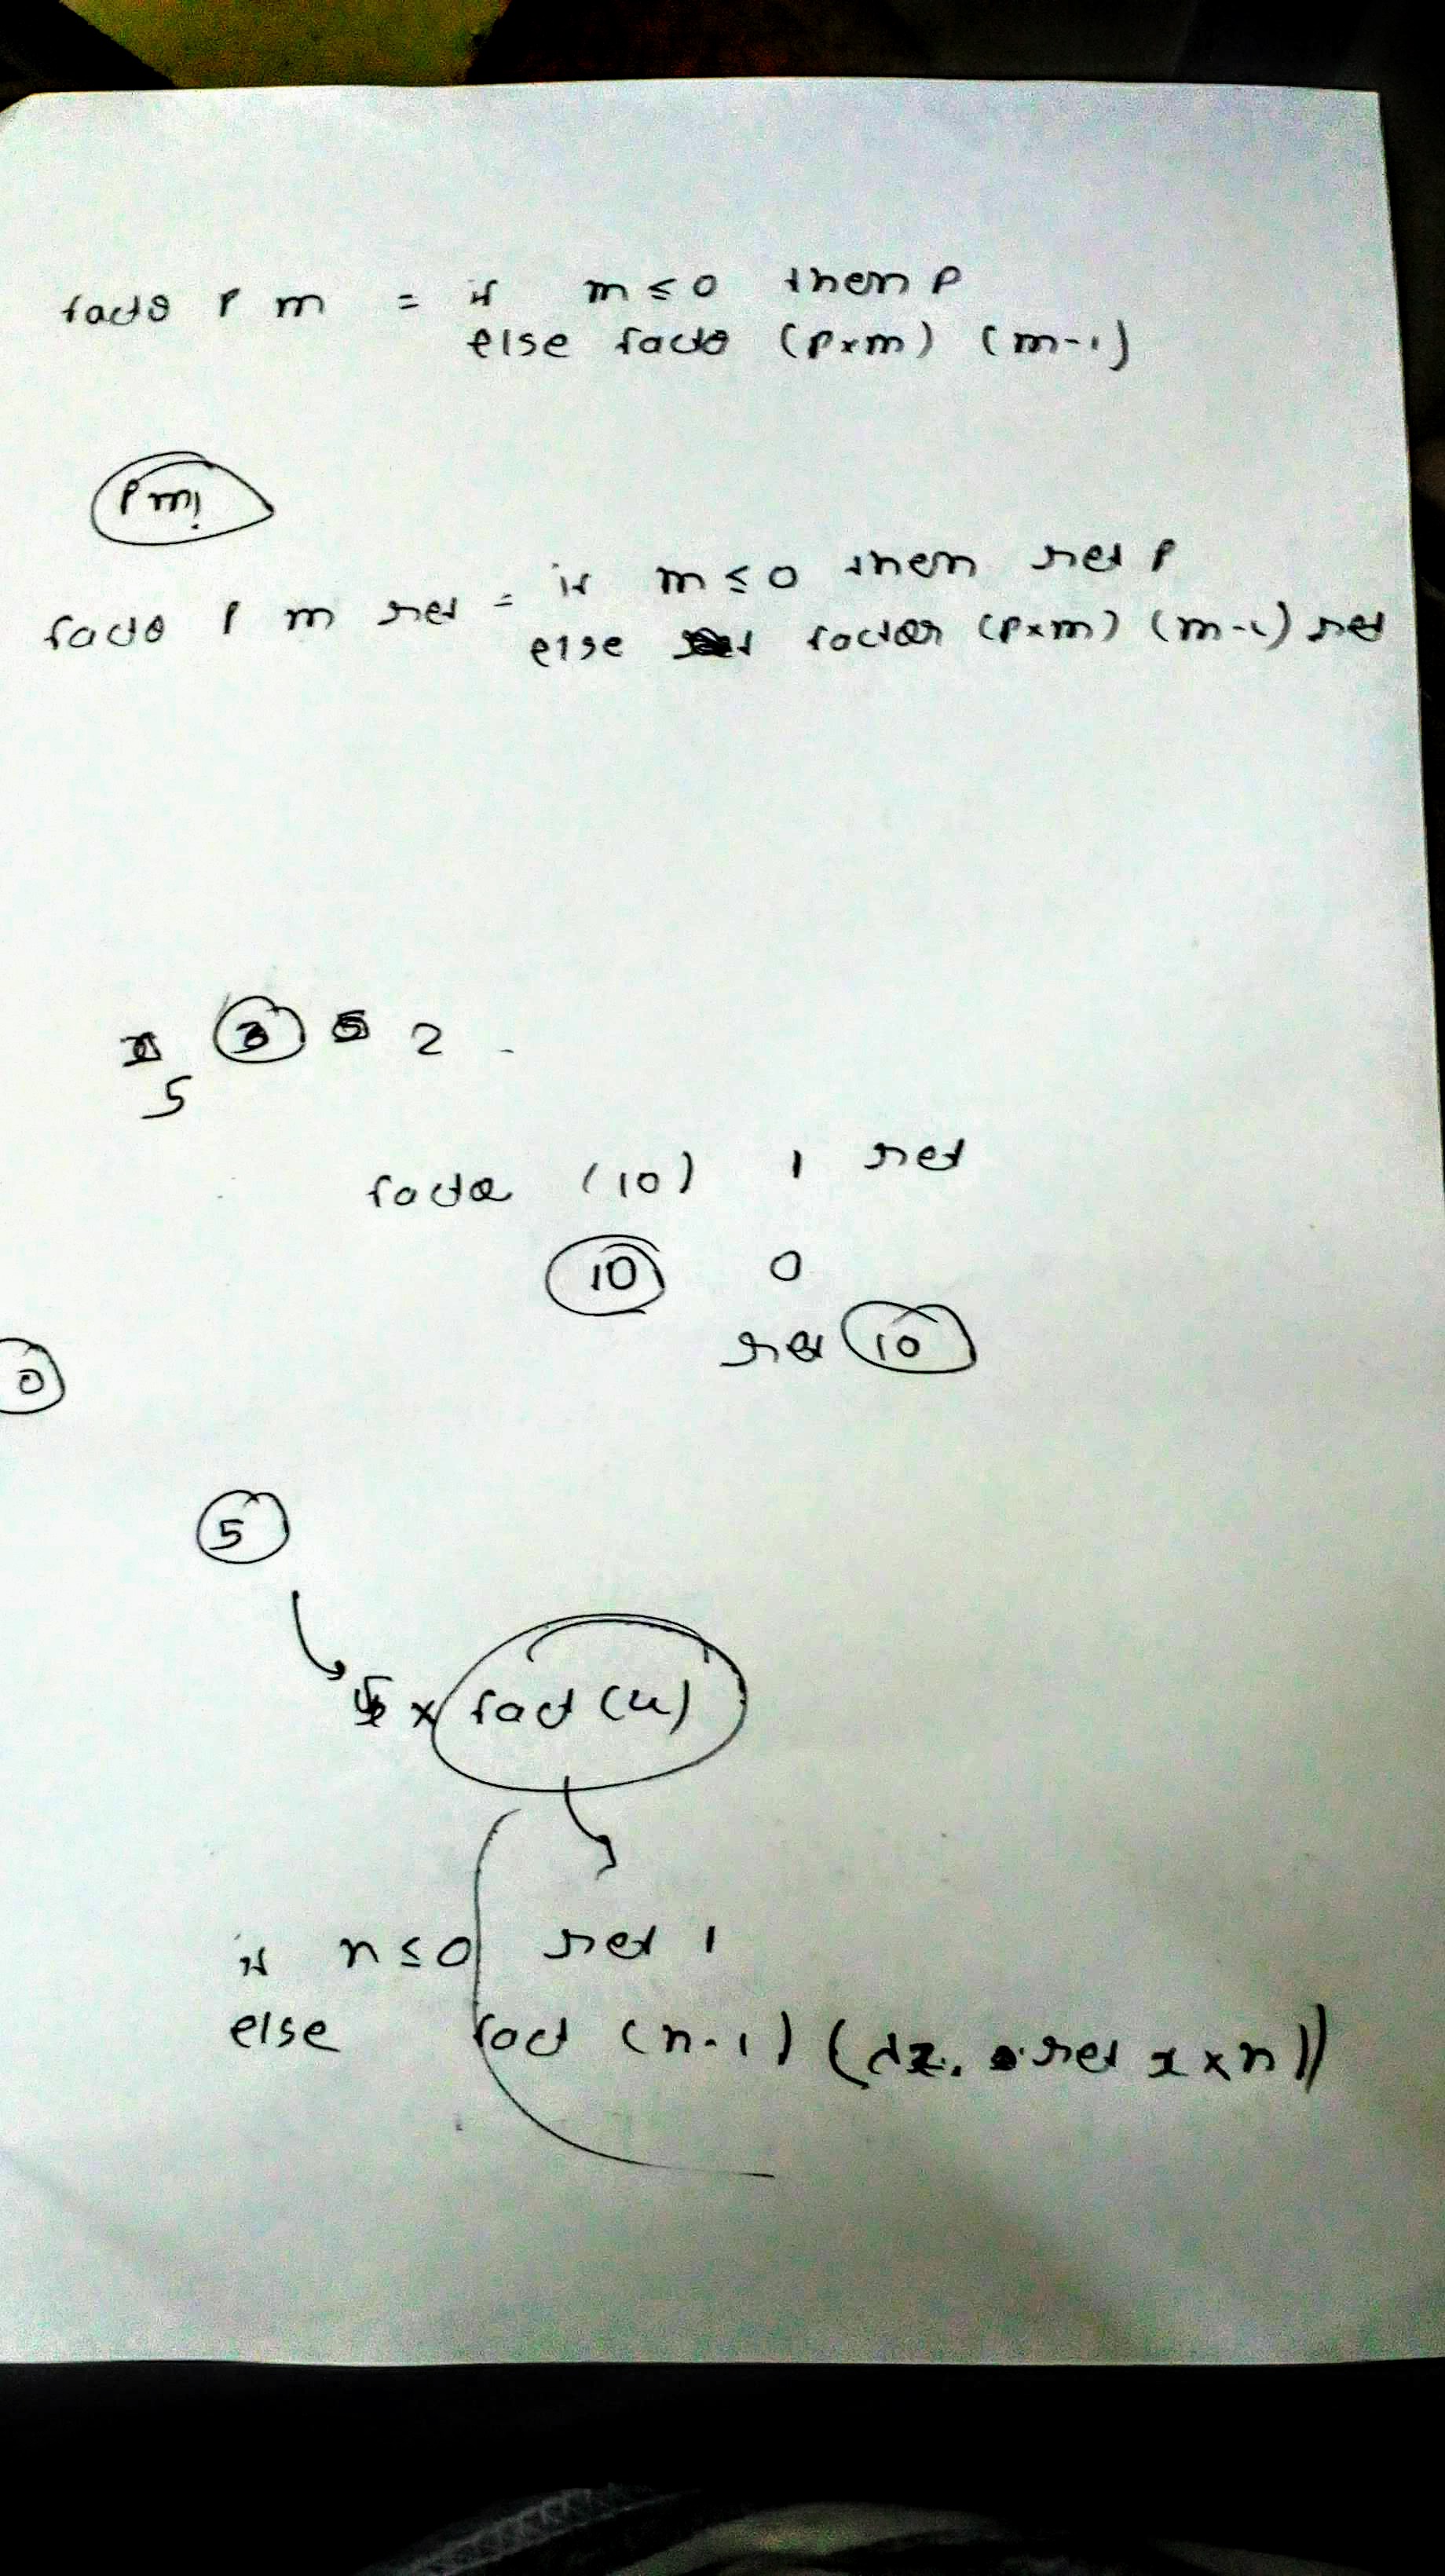 facto P m = if m ≤ 0 then P
else facto (P×m) (m-1)
P m!
facto P m ret = if m ≤ 0 then ret P
else factor (P×m) (m-1) ret
3 2
5
facto (10) 1 ret
10 0
ret 10
0
5
5 × fact (4)
if n ≤ 0 ret 1
else fact (n-1) (λx. ret x × n))